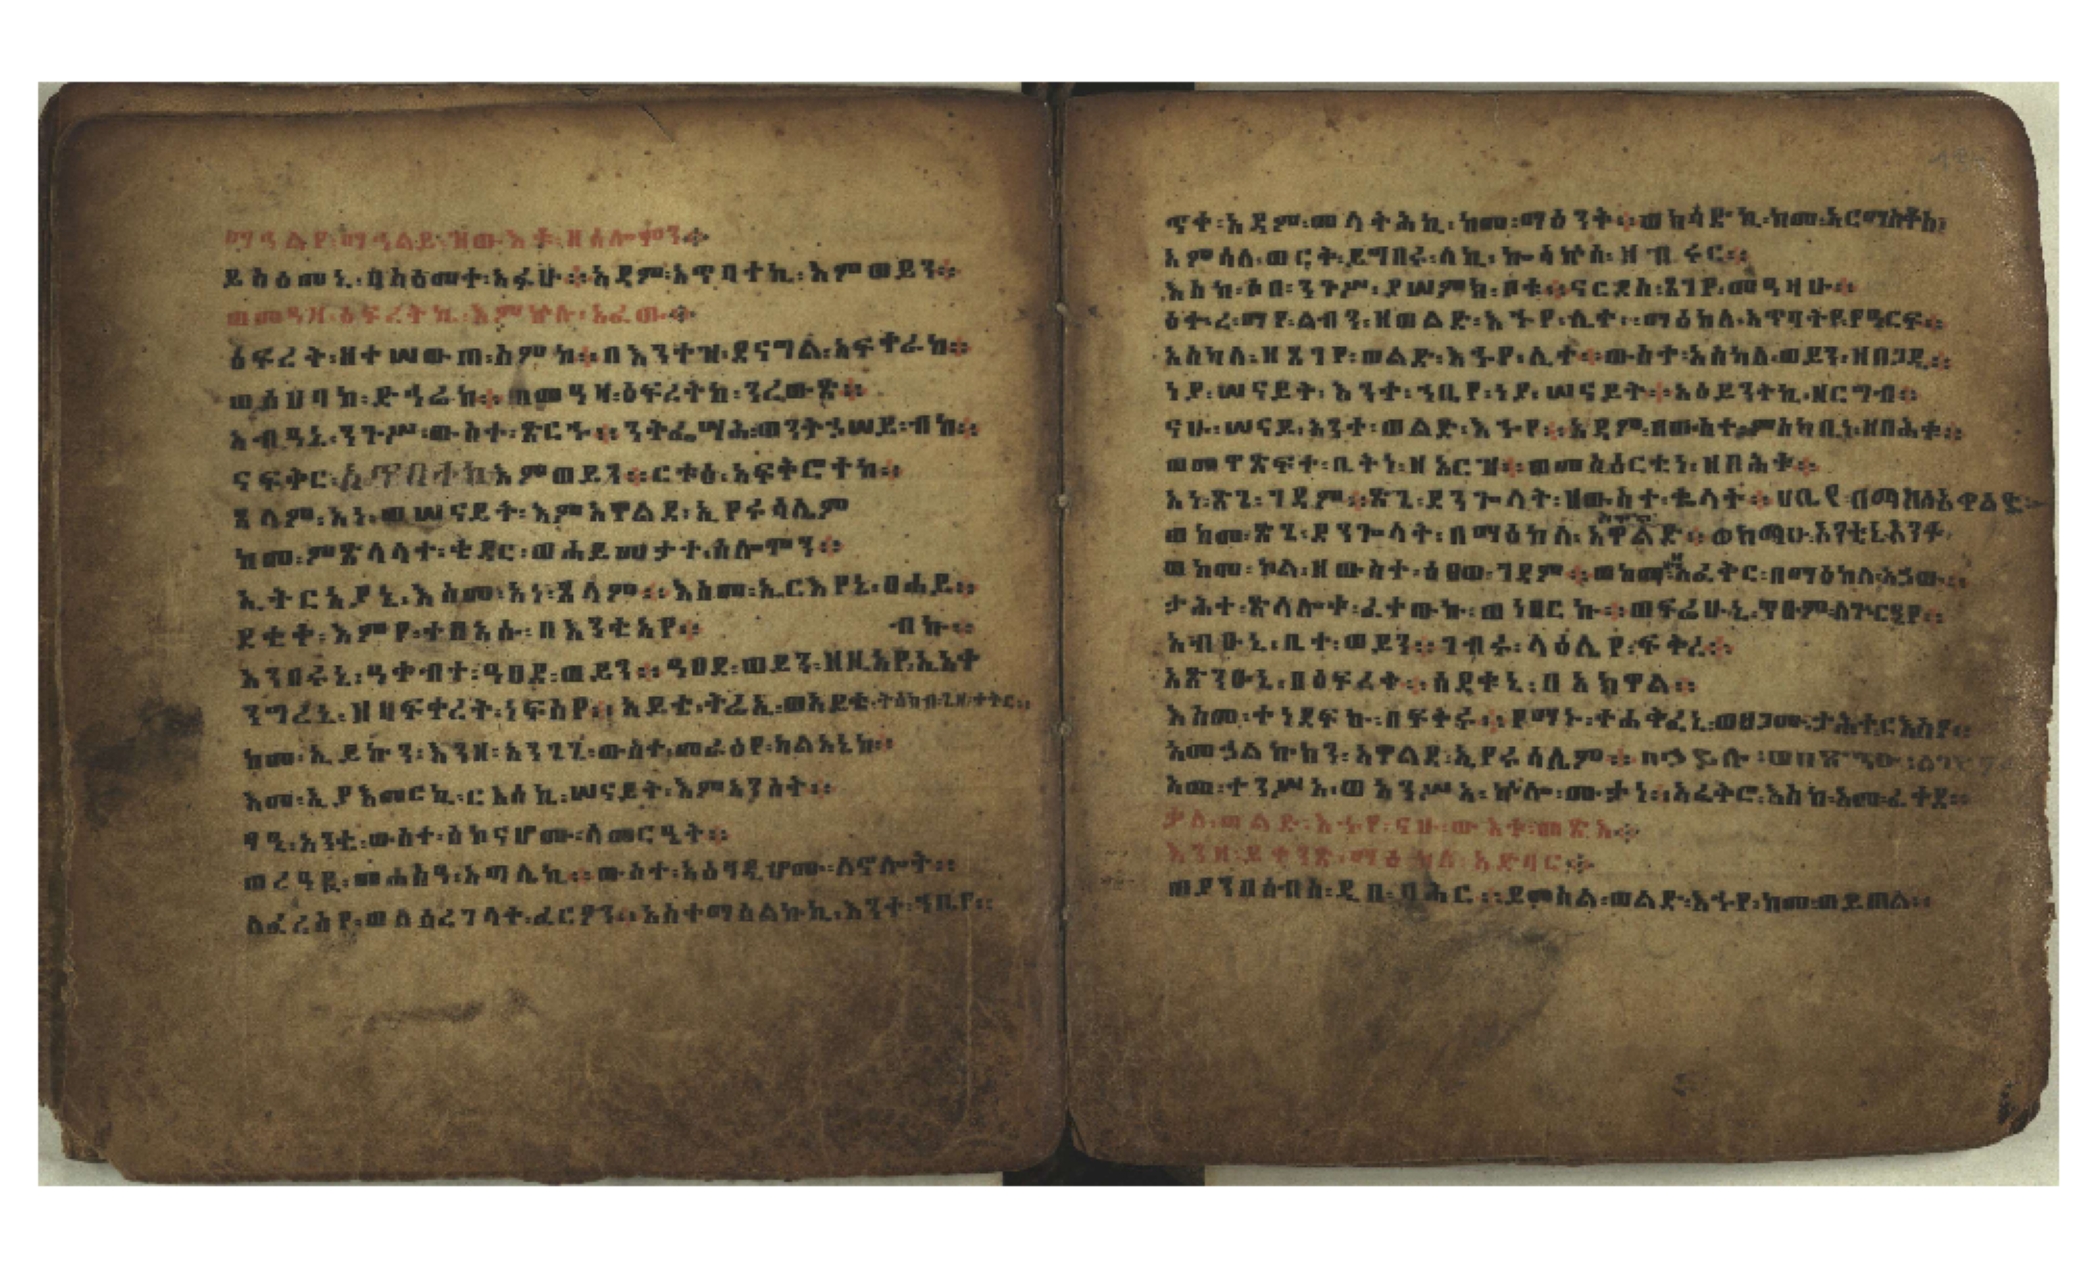 ማኅልየ፡ማኅልይ፡ዝውእቱ፡ዘሰሎሞን።
ይስዕመኒ፡በስዕመተ፡አፉሁ። አዳም፡አጥባተኪ፡እምወይን።
ወመዓዛ፡ዕፍረትኪ፡እምኵሉ፡አፈው።
ዕፍረት፡ዘተሠውጠ፡ስምከ። በእንተዝ፡ደናግል፡አፍቀራከ።
ወሰሀባከ፡ድኅሬከ። ጠመዓዛ፡ዕፍረትከ፡ንረውጽ።
አብዓኒ፡ንጉሥ፡ውስተ፡ጽርሑ። ንትፌሣሕ፡ወንትኃሠይ፡ብከ።
ናፍቅር፡አጥባተከ፡እምወይን። ርቱዕ፡አፍቅሮተከ።
ጸላም፡አነ፡ወሠናይት፡አምአዋልደ፡ኢየሩሳሌም
ከመ፡ምጽላላተ፡ቄዳር፡ወሐይመታተ፡ሰሎሞን።
ኢትርአያኒ፡እስመ፡አነ፡ጸላም። እስመ፡ኢርእየኒ፡ፀሐይ።
ደቂቀ፡እምየ፡ተፀአሉ፡በእንቲአየ። ብኩ።
አንበሩኒ፡ዓቃቢተ፡ዓፀደ፡ወይን። ዓፀደ፡ወይን፡ዘዚአየ፡ኢዐቀ
ንግረኒ፡ዘዛፍቀረት፡ነፍስየ። አይቴ፡ትሬኢ፡ወአይቴ፡
ከመ፡ኢይኩን፡እንዘ፡አንጌጊ፡ውስተ፡መራዕየ፡ካልአኒከ።
እመ፡ኢያእመርኪ፡ርእሰኪ፡ሠናይት፡እምአንስት።
ፃዒ፡አንቲ፡ውስተ፡ሰኰናሆሙ፡ለመርዔት።
ወረዓዪ፡መሐስዓ፡አጣሌኪ። ውስተ፡አዕፃዲሆሙ፡ለኖሎት።
ለፈረስየ፡ወለሰረገላተ፡ፈርዖን። አስተማሰልኩኪ፡እንተ፡ኀቤየ።
ጥቀ፡አዳም፡መላትሕኪ፡ከመ፡ማዕንቅ። ወክሳድኪ፡ከመ፡አርማስቆስ፡
አምሳለ፡ወርቅ፡ይግበሩ፡ለኪ፡ኰሳኵሰ፡ዘብሩር።
እስከ፡ሶበ፡ንጉሥ፡ያሠምክ፡ቦቱ። ናርዶስ፡ጼነየ፡መዓዛሁ።
ዕቍረ፡ማየ፡ልብን፡ዘወልድ፡እኁየ፡ሊተ። ማዕከለ፡አጥባትየ፡የዓርፍ።
አስካለ፡ዘጼነየ፡ወልድ፡እኁየ፡ሊተ። ውስተ፡አስካለ፡ወይን፡ዘበጋዲ።
ነያ፡ሠናይት፡እንተ፡ኀቤየ፡ነያ፡ሠናይት። አዕይንትኪ፡ዘርግብ።
ናሁ፡ሠናይ፡እንተ፡ወልድ፡እኁየ። አዳም፡ዘውስተ፡ምስካቢነ፡ዘበሕቁ።
ወመዋጽፍተ፡ቤትነ፡ዘአርዝ። ወመስዕርቲነ፡ዘበሕቁ።
አነ፡ጽጌ፡ገዳም። ጽጌ፡ደንጐላት፡ዘውስተ፡ቈላት።
ወከመ፡ጽጌ፡ደንጐላት፡በማዕከለ፡አዋልድ።
ወከመ፡ኮል፡ዘውስተ፡ዕፀወ፡ገዳም። ወከመዝ፡እፈቅር፡በማዕከለ፡አኃው።
ታሕተ፡ጽላሎቱ፡ፈተውኩ፡ወነበርኩ። ወፍሬሁኒ፡ጥዑም፡ለጕርዔየ።
አብኡኒ፡ቤተ፡ወይን። ገብሩ፡ላዕሌየ፡ፍቅረ።
አጽንዑኒ፡በዕፍረት። ሰደቁኒ፡በአኰዋል።
እስመ፡ተነደፍኩ፡በፍቅሩ። የማኑ፡ተሐቅፈኒ፡ወፀጋሙ፡ታሕተ፡ርእስየ።
አመኃልኩክን፡አዋልደ፡ኢየሩሳሌም። በኃይሉ፡ወበጽንዑ፡ለገዳም
እመ፡ተንሥአ፡ወአንሥአ፡ኵሎ፡ሙቃነ። አፈቅሮ፡እስከ፡አመ፡ፈተደ።
ቃለ፡ወልድ፡እኁየ፡ናሁ፡ውእቱ፡መጽአ።
እንዘ፡ይቀንጽ፡ማዕከለ፡አድባር።
ወያንበሰብስ፡ዲበ፡ባሕር። ይመስል፡ወልድ፡እኁየ፡ከመ፡ወይጠል።